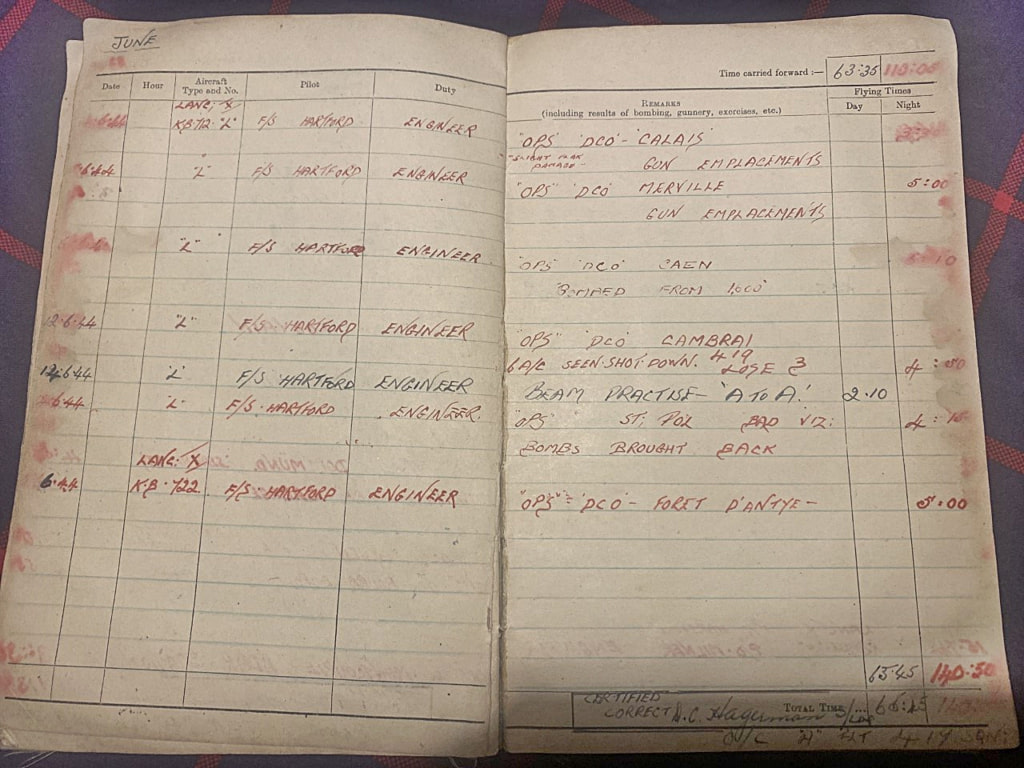 JUNE
Date Hour Aircraft Type and No. Pilot Duty
LANC; X
"L" F/S HARTFORD ENGINEER
"L" F/S HARTFORD ENGINEER
"L" F/S HARTFORD ENGINEER
12.6.44 "L" F/S HARTFORD ENGINEER
"L" F/S HARTFORD ENGINEER
6.44 "L" F/S. HARTFORD ENGINEER.
LANC; X
6.44 K.B. 722. F/S HARTFORD ENGINEER
Time carried forward :— 63:35
Flying Times
Remarks
(including results of bombing, gunnery, exercises, etc.)
Day Night
"OPS" 'DCO' - 'CALAIS'
"SLIGHT FLAK
DAMAGE- GUN EMPLACEMENTS
"OPS" 'DCO' MERVILLE 5:00
GUN EMPLACEMENTS
"OPS" 'DCO' CAEN
BOMBED FROM
"OPS" 'DCO' CAMBRAI
6 A/C SEEN SHOT DOWN. 419 LOSE 3
BEAM PRACTISE- 'A TO A'. 2.10
"OPS" ST; POL BAD VIZ:
BOMBS BROUGHT BACK
"OPS" - 'DCO' - FORET D'ANTYE - 5:00
140:50
CERTIFIED
CORRECT D.C. Hagerman Total Time
O/C "A" 417